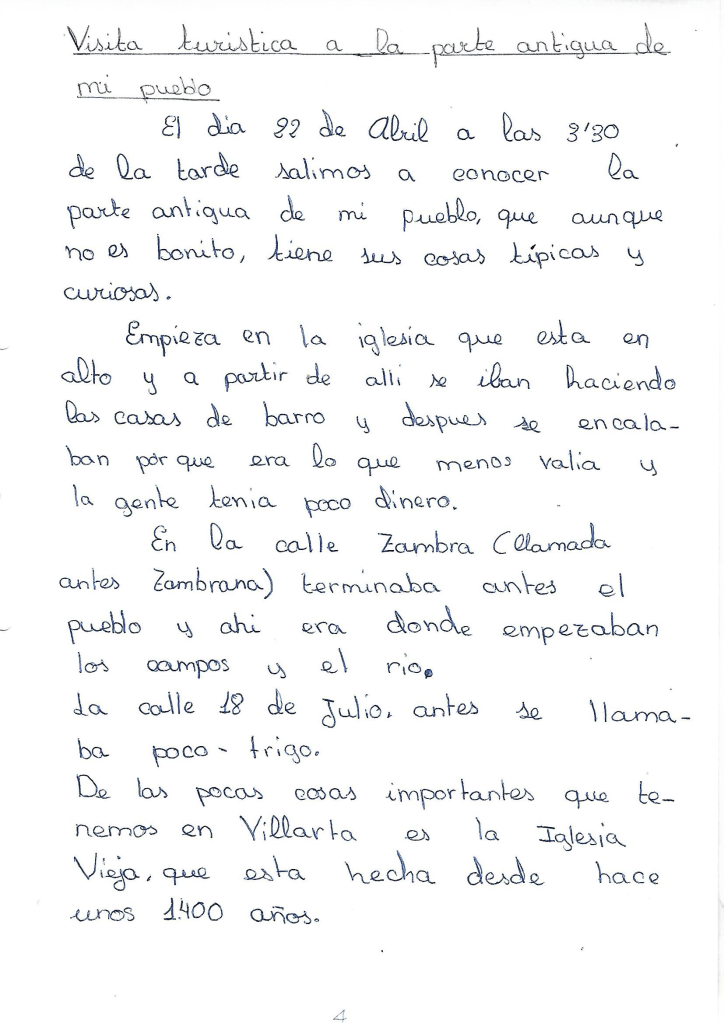 Visita turistica a la parte antigua de
mi pueblo
El dia 22 de Abril a las 3'30
de la tarde salimos a conocer la
parte antigua de mi pueblo, que aunque
no es bonito, tiene sus cosas típicas y
curiosas.
Empieza en la iglesia que esta en
alto y a partir de alli se iban haciendo
las casas de barro y despues se encala-
ban por que era lo que menos valia y
la gente tenia poco dinero.
En la calle Zambra (llamada
antes Zambrana) terminaba antes el
pueblo y ahi era donde empezaban
los campos y el rio.
La calle 18 de Julio, antes se llama-
ba poco - trigo.
De las pocas cosas importantes que te-
nemos en Villarta es la Iglesia
Vieja, que esta hecha desde hace
unos 1.400 años.
4